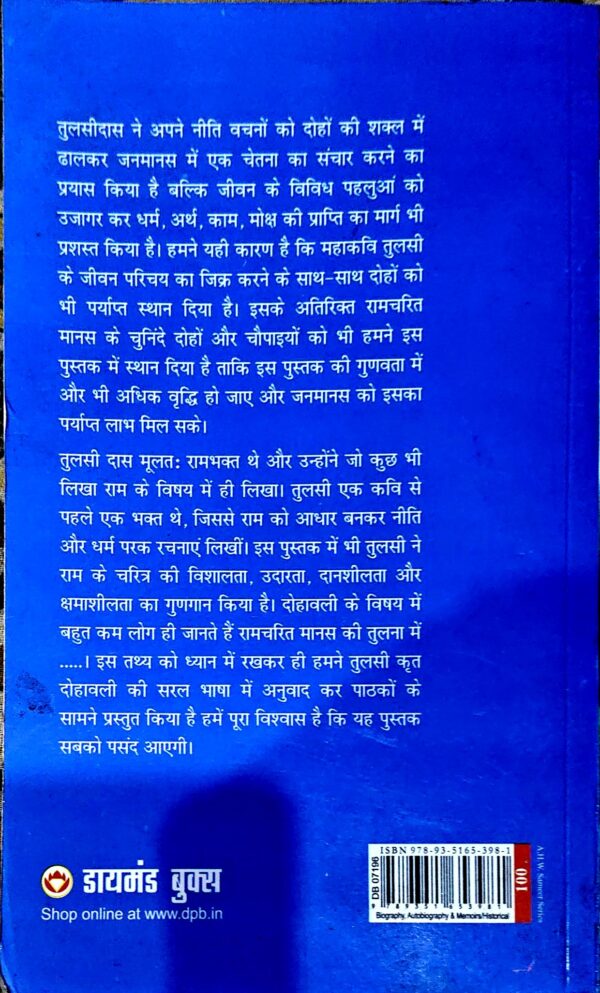 तुलसीदास ने अपने नीति वचनों को दोहों की शक्ल में
ढालकर जनमानस में एक चेतना का संचार करने का
प्रयास किया है बल्कि जीवन के विविध पहलुआं को
उजागर कर धर्म, अर्थ, काम, मोक्ष की प्राप्ति का मार्ग भी
प्रशस्त किया है। हमने यही कारण है कि महाकवि तुलसी
के जीवन परिचय का जिक्र करने के साथ-साथ दोहों को
भी पर्याप्त स्थान दिया है। इसके अतिरिक्त रामचरित
मानस के चुनिंदे दोहों और चौपाइयों को भी हमने इस
पुस्तक में स्थान दिया है ताकि इस पुस्तक की गुणवता में
और भी अधिक वृद्धि हो जाए और जनमानस को इसका
पर्याप्त लाभ मिल सके।
तुलसी दास मूलत: रामभक्त थे और उन्होंने जो कुछ भी
लिखा राम के विषय में ही लिखा। तुलसी एक कवि से
पहले एक भक्त थे, जिससे राम को आधार बनकर नीति
और धर्म परक रचनाएं लिखीं। इस पुस्तक में भी तुलसी ने
राम के चरित्र की विशालता, उदारता, दानशीलता और
क्षमाशीलता का गुणगान किया है। दोहावली के विषय में
बहुत कम लोग ही जानते हैं रामचरित मानस की तुलना में
.....। इस तथ्य को ध्यान में रखकर ही हमने तुलसी कृत
दोहावली की सरल भाषा में अनुवाद कर पाठकों के
सामने प्रस्तुत किया है हमें पूरा विश्वास है कि यह पुस्तक
सबको पसंद आएगी।
डायमंड बुक्स
Shop online at www.dpb.in
ISBN 978-93-5165-398-1
DB 07196
9 789351 653981
Biography, Autobiography & Memoirs/Historical
100
A.H.W. Sameer Series